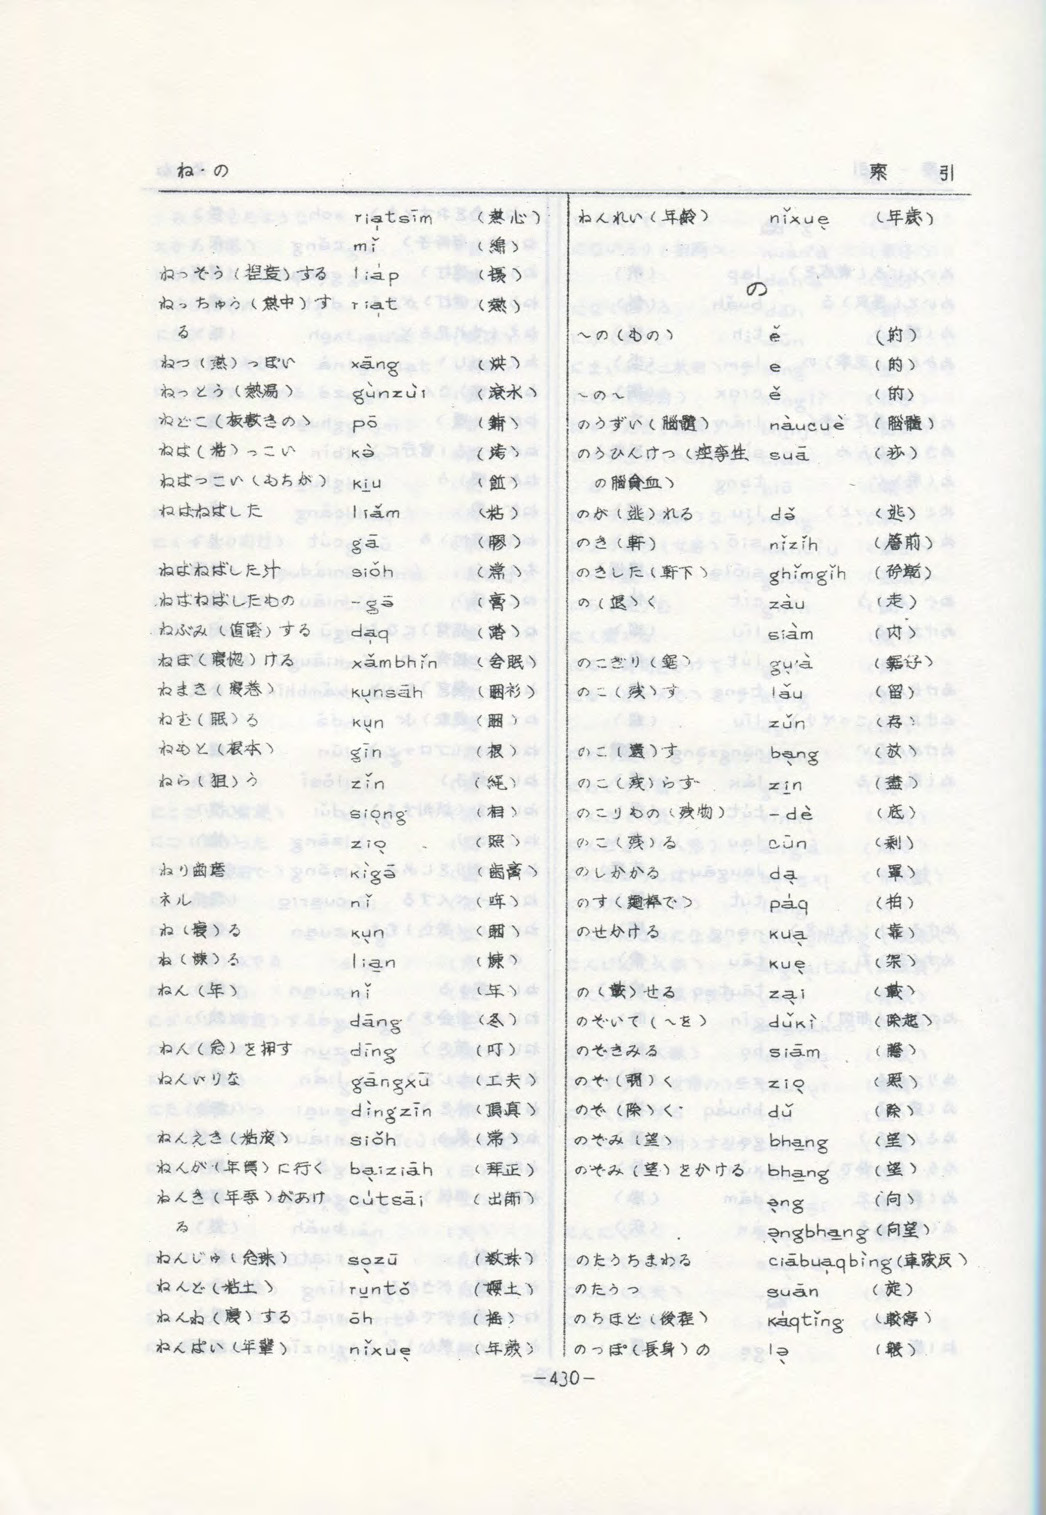 ね・の
索 引
riạtsīm (熱心)
mǐ (綿)
ねっそう(捏造)する liáp
ねっちゅう(熱中)す riạt (熱)
る
ねつ(熱)っぽい xāng (烘)
ねっとう(熱湯) gùnzùi (滾水)
ねどこ(板敷きの) pō (鋪)
ねば(粘)っこい
ねばっこい(もちが) ḳiu
ねばねばした liǎm (粘)
gā (膠)
ねばねばした汁 siǒh
ねばねばしたもの (膏)
ねぶみ(値踏)する dạq
ねぼ(寝惚)ける xǎmbhǐn (含眠)
ねまき(寝巻) kụnsāh (睏衫)
ねむ(眠)る kụn (睏)
ねもと(根本) gīn (根)
ねら(狙)う zǐn
siọng (相)
ziọ (照)
ねり歯磨 kìgā (歯膏)
ネル nǐ
ね(寝)る kụn (睏)
ね(練)る liạn
ねん(年) nǐ (年)
dāng (冬)
ねん(念)を押す dīng (叮)
ねんいりな gāngxū (工夫)
dìngzīn (頂真)
ねんえき(粘液) siǒh
ねんが(年賀)に行く bạiziāh (拜正)
ねんき(年季)があけ cútsāi (出師)
る
ねんじゅ(念珠) sọzū (数珠)
ねんど(粘土) runtǒ
ねんね(寝)する ōh (搖)
ねんぱい(年輩) nǐxuẹ (年歲)
ねんれい(年齢) nǐxuẹ (年歲)
の
〜の(もの) ě (的)
e (的)
〜の〜 ě (的)
のうずい(脳髄) nàucuè (脳髓)
のうひんけつ(痙攣性 suā (痧)
の脳貧血)
のが(逃)れる (逃)
のき(軒) nǐzǐh (簷前)
のきした(軒下) ghǐmgǐh
の(退)く zàu (走)
siàm
のこぎり(鋸) gụ'à (鋸仔)
のこ(残)す lǎu (留)
zǔn (存)
のこ(遺)す bạng (放)
のこ(残)らす zịn (盡)
のこりもの(残物) -dè (底)
のこ(残)る cūn (剩)
のしかかる dạ (罩)
のす(麺棒で) páq (拍)
のせかける kuạ (靠)
kuẹ (架)
の(載)せる zại (載)
のぞいて(〜を) dǔkì (除起)
のぞきみる siām
のぞ(覗)く ziọ (照)
のぞ(除)く dǔ (除)
のぞみ(望) bhạng (望)
のぞみ(望)をかける bhạng (望)
ạng (向)
ạngbhạng (向望)
のたうちまわる ciābuạqbìng (車撥反)
のたうつ suān (旋)
のちほど(後程) káqtǐng (較停)
のっぽ(長身)の
-430-